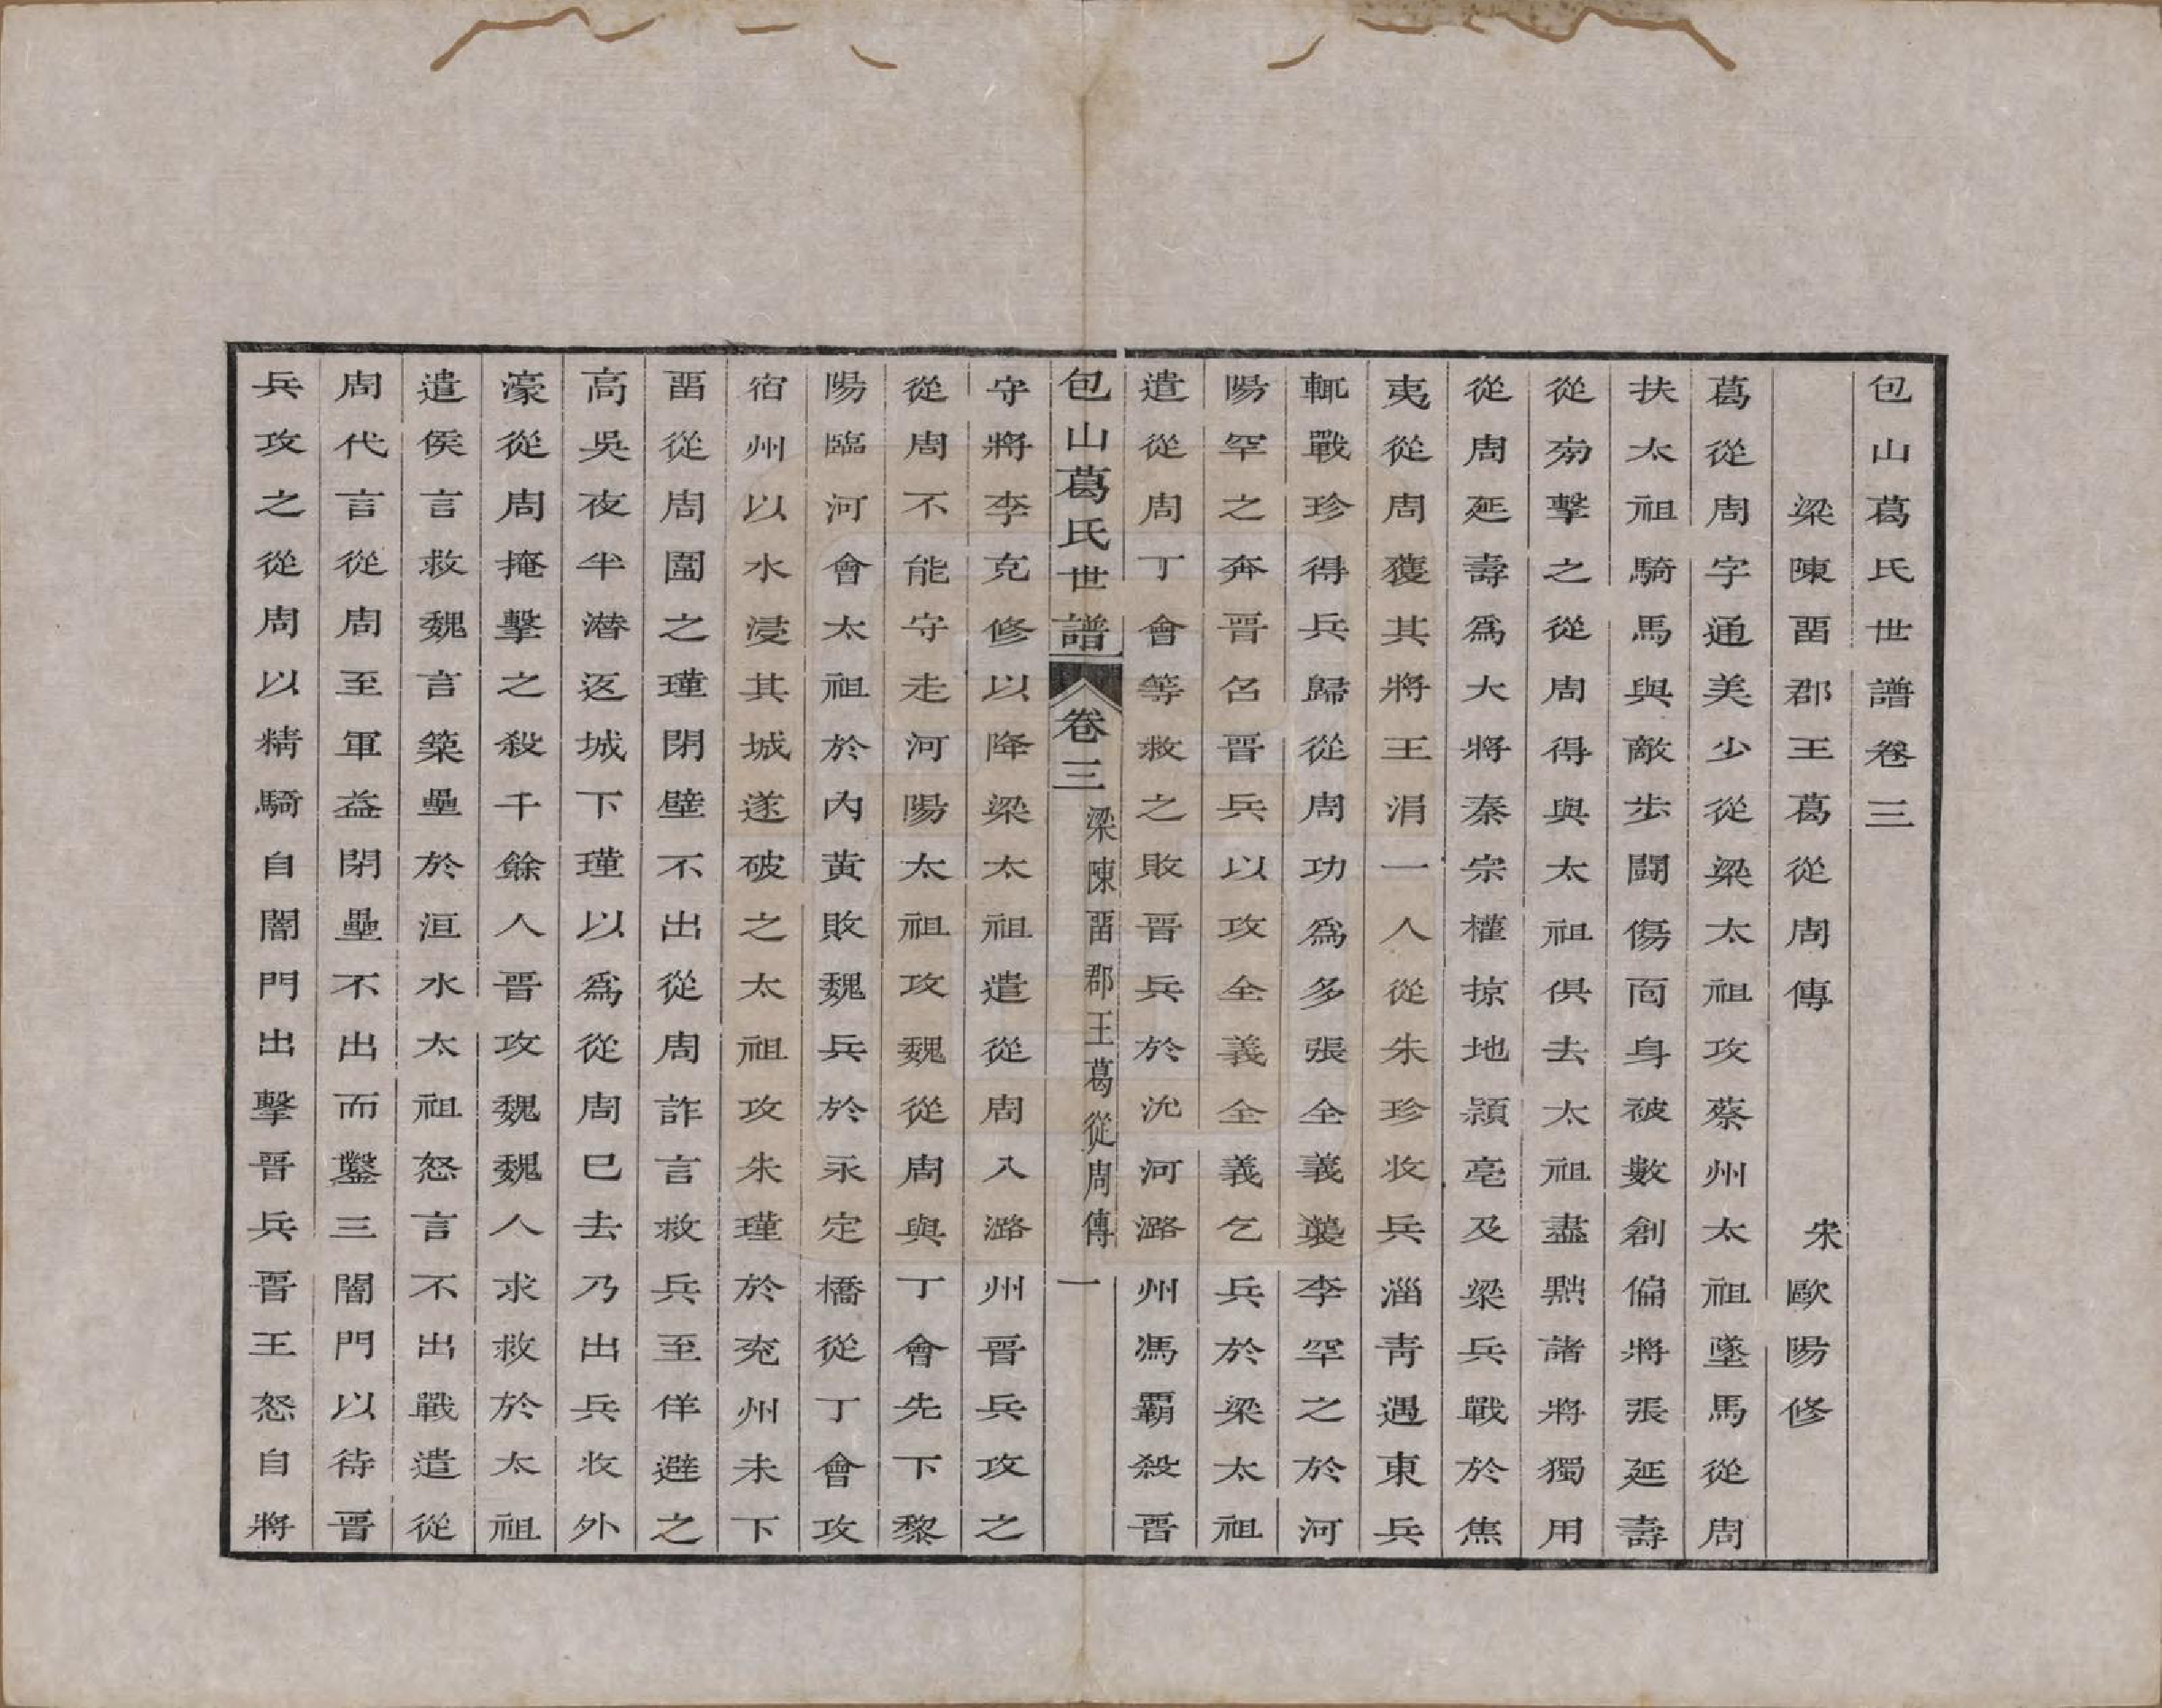 包山葛氏世譜卷三
梁陳畱郡王葛從周傳　宋歐陽修
葛從周字通美少從梁太祖攻蔡州太祖墜馬從周
扶太祖騎馬與敵步鬪傷面身被數創偏將張延壽
從旁擊之從周得與太祖俱去太祖盡黜諸將獨用
從周延壽爲大將秦宗權掠地潁亳及梁兵戰於焦
夷從周獲其將王涓一人從朱珍收兵淄青遇東兵
輒戰珍得兵歸從周功爲多張全義襲李罕之於河
陽罕之奔晉召晉兵以攻全義全義乞兵於梁太祖
遣從周丁會等救之敗晉兵於沇河潞州馮霸殺晉
包山葛氏世譜　卷三　梁陳畱郡王葛從周傳　一
守將李克修以降梁太祖遣從周入潞州晉兵攻之
從周不能守走河陽太祖攻魏從周與丁會先下黎
陽臨河會太祖於內黃敗魏兵於永定橋從丁會攻
宿州以水浸其城遂破之太祖攻朱瑾於兗州未下
畱從周圍之瑾閉壁不出從周詐言救兵至佯避之
高吳夜半潜返城下瑾以爲從周已去乃出兵收外
濠從周掩擊之殺千餘人晉攻魏魏人求救於太祖
遣侯言救魏言築壘於洹水太祖怒言不出戰遣從
周代言從周至軍益閉壘不出而鑿三闇門以待晉
兵攻之從周以精騎自闇門出擊晉兵晉王怒自將